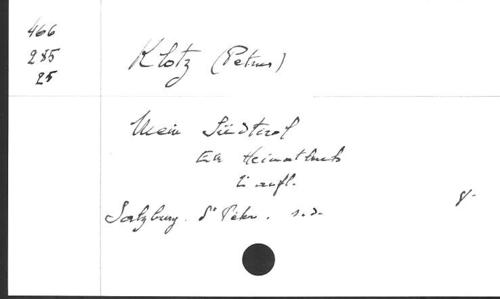 466
285
25
Klotz (Petrus)
Mein Südtirol
Ein Heimatbuch
2 aufl.
Salzburg. St Peter. s.d.
8-